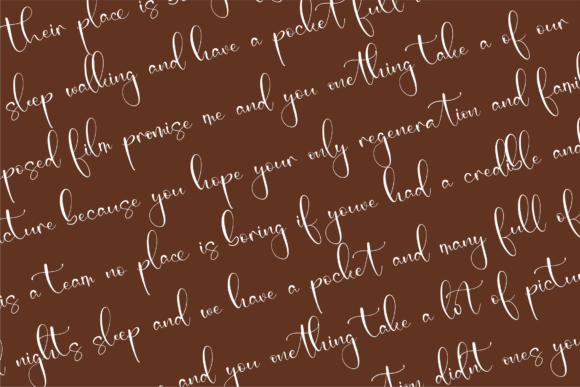 their place is
sleep walking and have a pocket full
posed film promise me and you onething take a of our
cture because you hope your only regeneration and famil
is a team no place is boring if youve had a credible and
nights sleep and we have a pocket and many full of
and you onething take a lot of pictu
tion didnt ones you